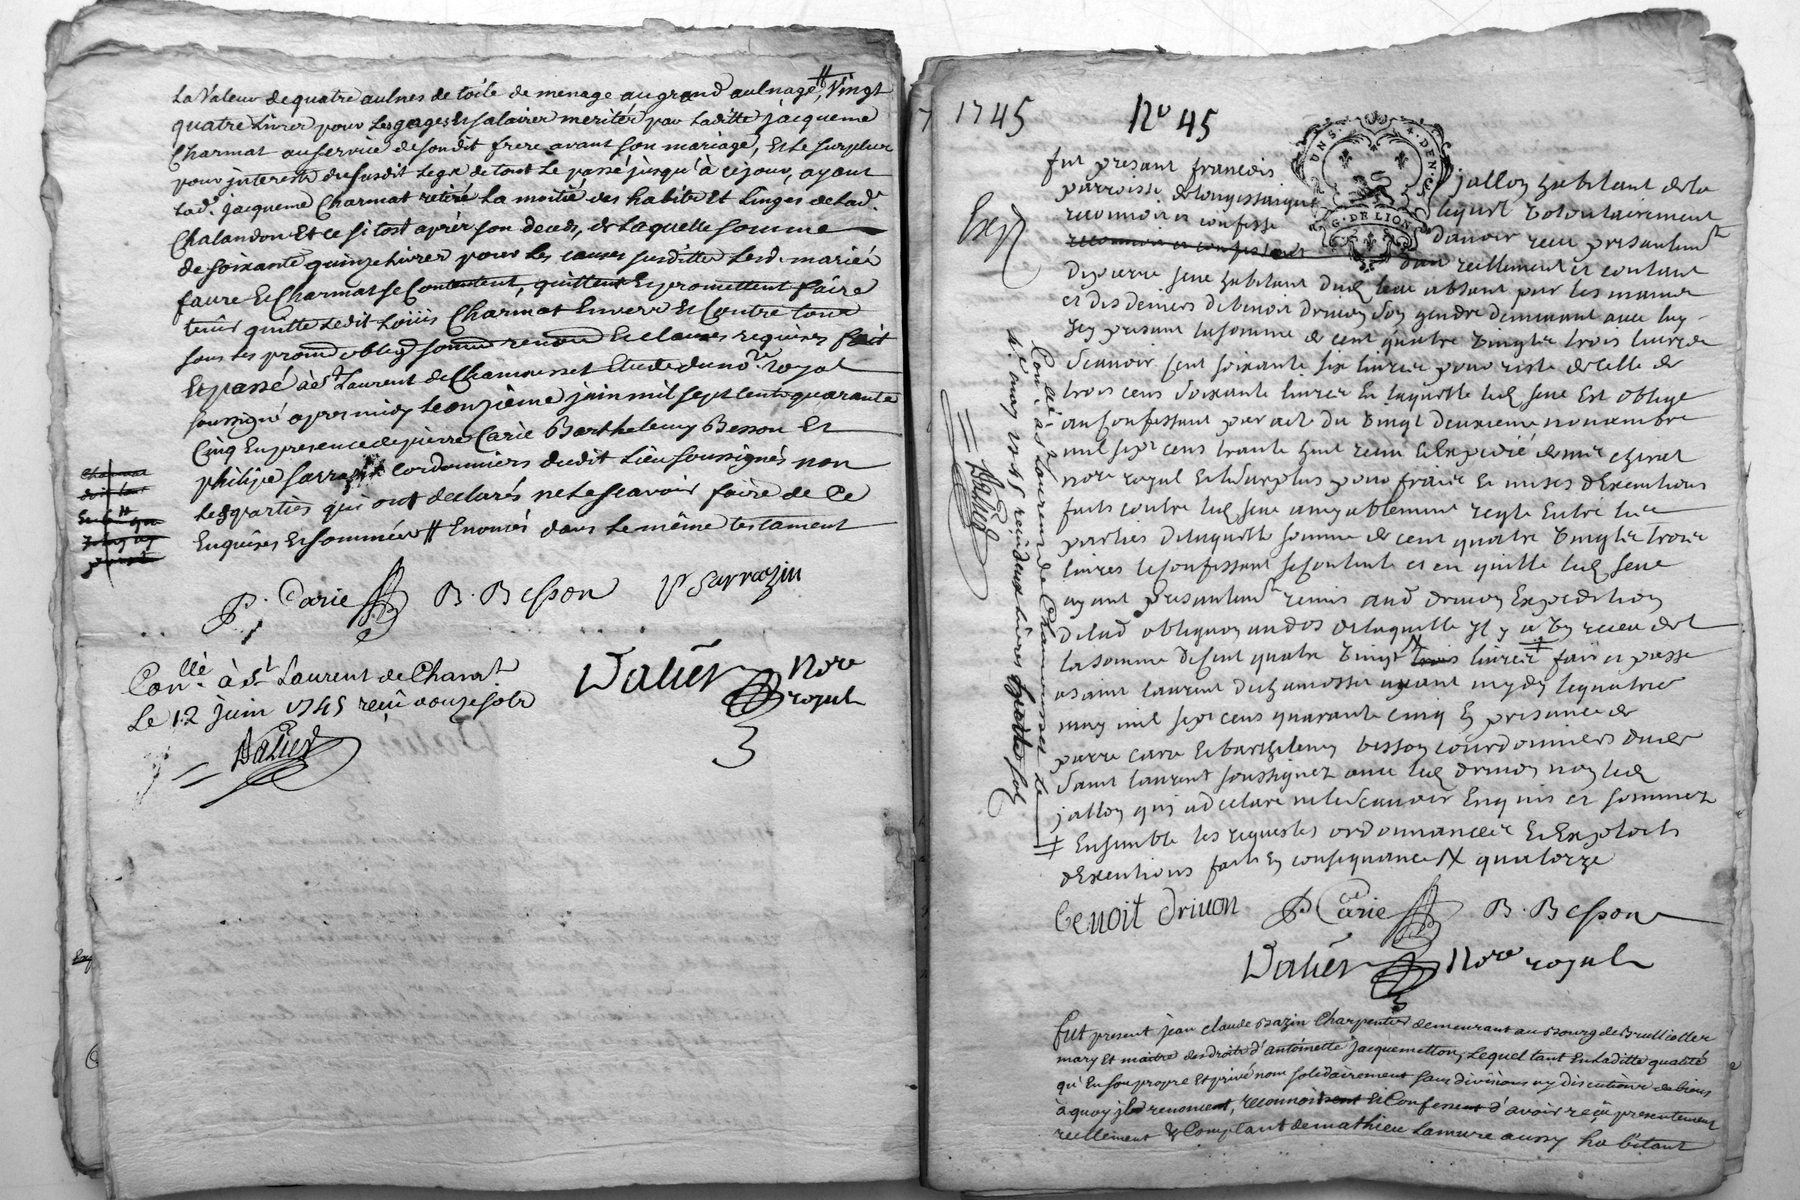 La Valeur de quatre aulnes de toile de menage au grand aulnage, # Vingt
quatre Livres pour Les gages Et salaires merités par Laditte jacqueme
Charmat au service de Sondit frere avant Son mariage, Et Le Surplus
pour interests du susdit Legs de tout Le passé jusqu'à ce jour, ayant
Lad.e jacqueme Charmat retiré La moitié des habits Et Linges de Lad.e
Chalandon Et ce si tost aprés son deceds, de Laquelle somme
de soixante quinze Livres pour Les causes susdittes Lesd. mariés
faure Et Charmat se Contentent, quittent Et promettent faire
tenir quitte Ledit Loüis Charmat Envers Et Contre tous
sous Les prom oblig soum renon Et clauses requises fait
Et passé à St Laurent de Chamousset Etude du no.re royal
soussigné apres midy Le onzième juin mil sept cents quarante
Cinq En presence de pierre Carie Barthelemy Besson Et
philipe sarrazin cordonniers dudit Lieu soussignés non
Les parties qui ont declarés ne Le scavoir faire de Ce
Enquises Et sommées # Enoncés dans Le même testament
P. Carie B. Besson Pr Sarrazin
Con.llé à St Laurent de Chamt.
Le 12 juin 1745 reçu douze sols
Dalier
Dalier Nore
royal
3
1745 No 45
fut presant francois jallon habitant de la
parroisse de longessaigne lequel volontairement
reconnoit et confesse d'avoir receu presantemt
reconnoit et confesse reellement et contant
de pierre seve habitant dud lieu absant par les mains
et des deniers de benoit drivon son gendre demeurant avec luy
jcy presant la somme de cent quatre vingts trois livres
scavoir cent soixante six livres pour reste de celle de
trois cens soixante livres En laquelle led seve Est obligé
au confessant par acte du vingt deuxieme novembre
mil sept cens trante huit receu Et Expedié de me
nore royal Et le surplus pour fraix Et mises d'Executions
faits contre led seve amyablement reglé Entre les
parties de laquelle somme de cent quatre vingts trois
livres le confessant se contente et en quitte led seve
ayant presantemt remis aud drivon Expedition
de lad obligaon au dos de laquelle Il y a un receu de
la somme de cent quatre vingt trois livres fait et passé
a saint laurent de chamosset avant mydy le quatre
may mil sept cens quarante cinq En presance de
pierre carie Et barthelemy besson cordonniers dud
saint laurent soussignez avec led drivon non led
jallon qui a declaré ne le scavoir Enquis et sommez
# Ensemble les requestes ordonnances Et Exploits
d'Executions faits En consequance X quatorze
Benoit Drivon P. Carie B. Besson
Dalier Nore royal
Con.llé à St Laurent de Chamousset Le
4.e may 1745 reçu deux Livres sols
Dalier
fut present jean claude Bazin Charpentier demeurant au Bourg de Brullioles
mary Et maitre des droits d'antoinette jacquemetton, Lequel tant En Laditte qualité
qu'En son propre Et privé nom solidairement sans divisions ny discutions de biens
à quoy ils renoncent, reconnoissent Et Confessent d'avoir reçu presentement
reellement Et Comptant de mathieu Lamure aussy habitant